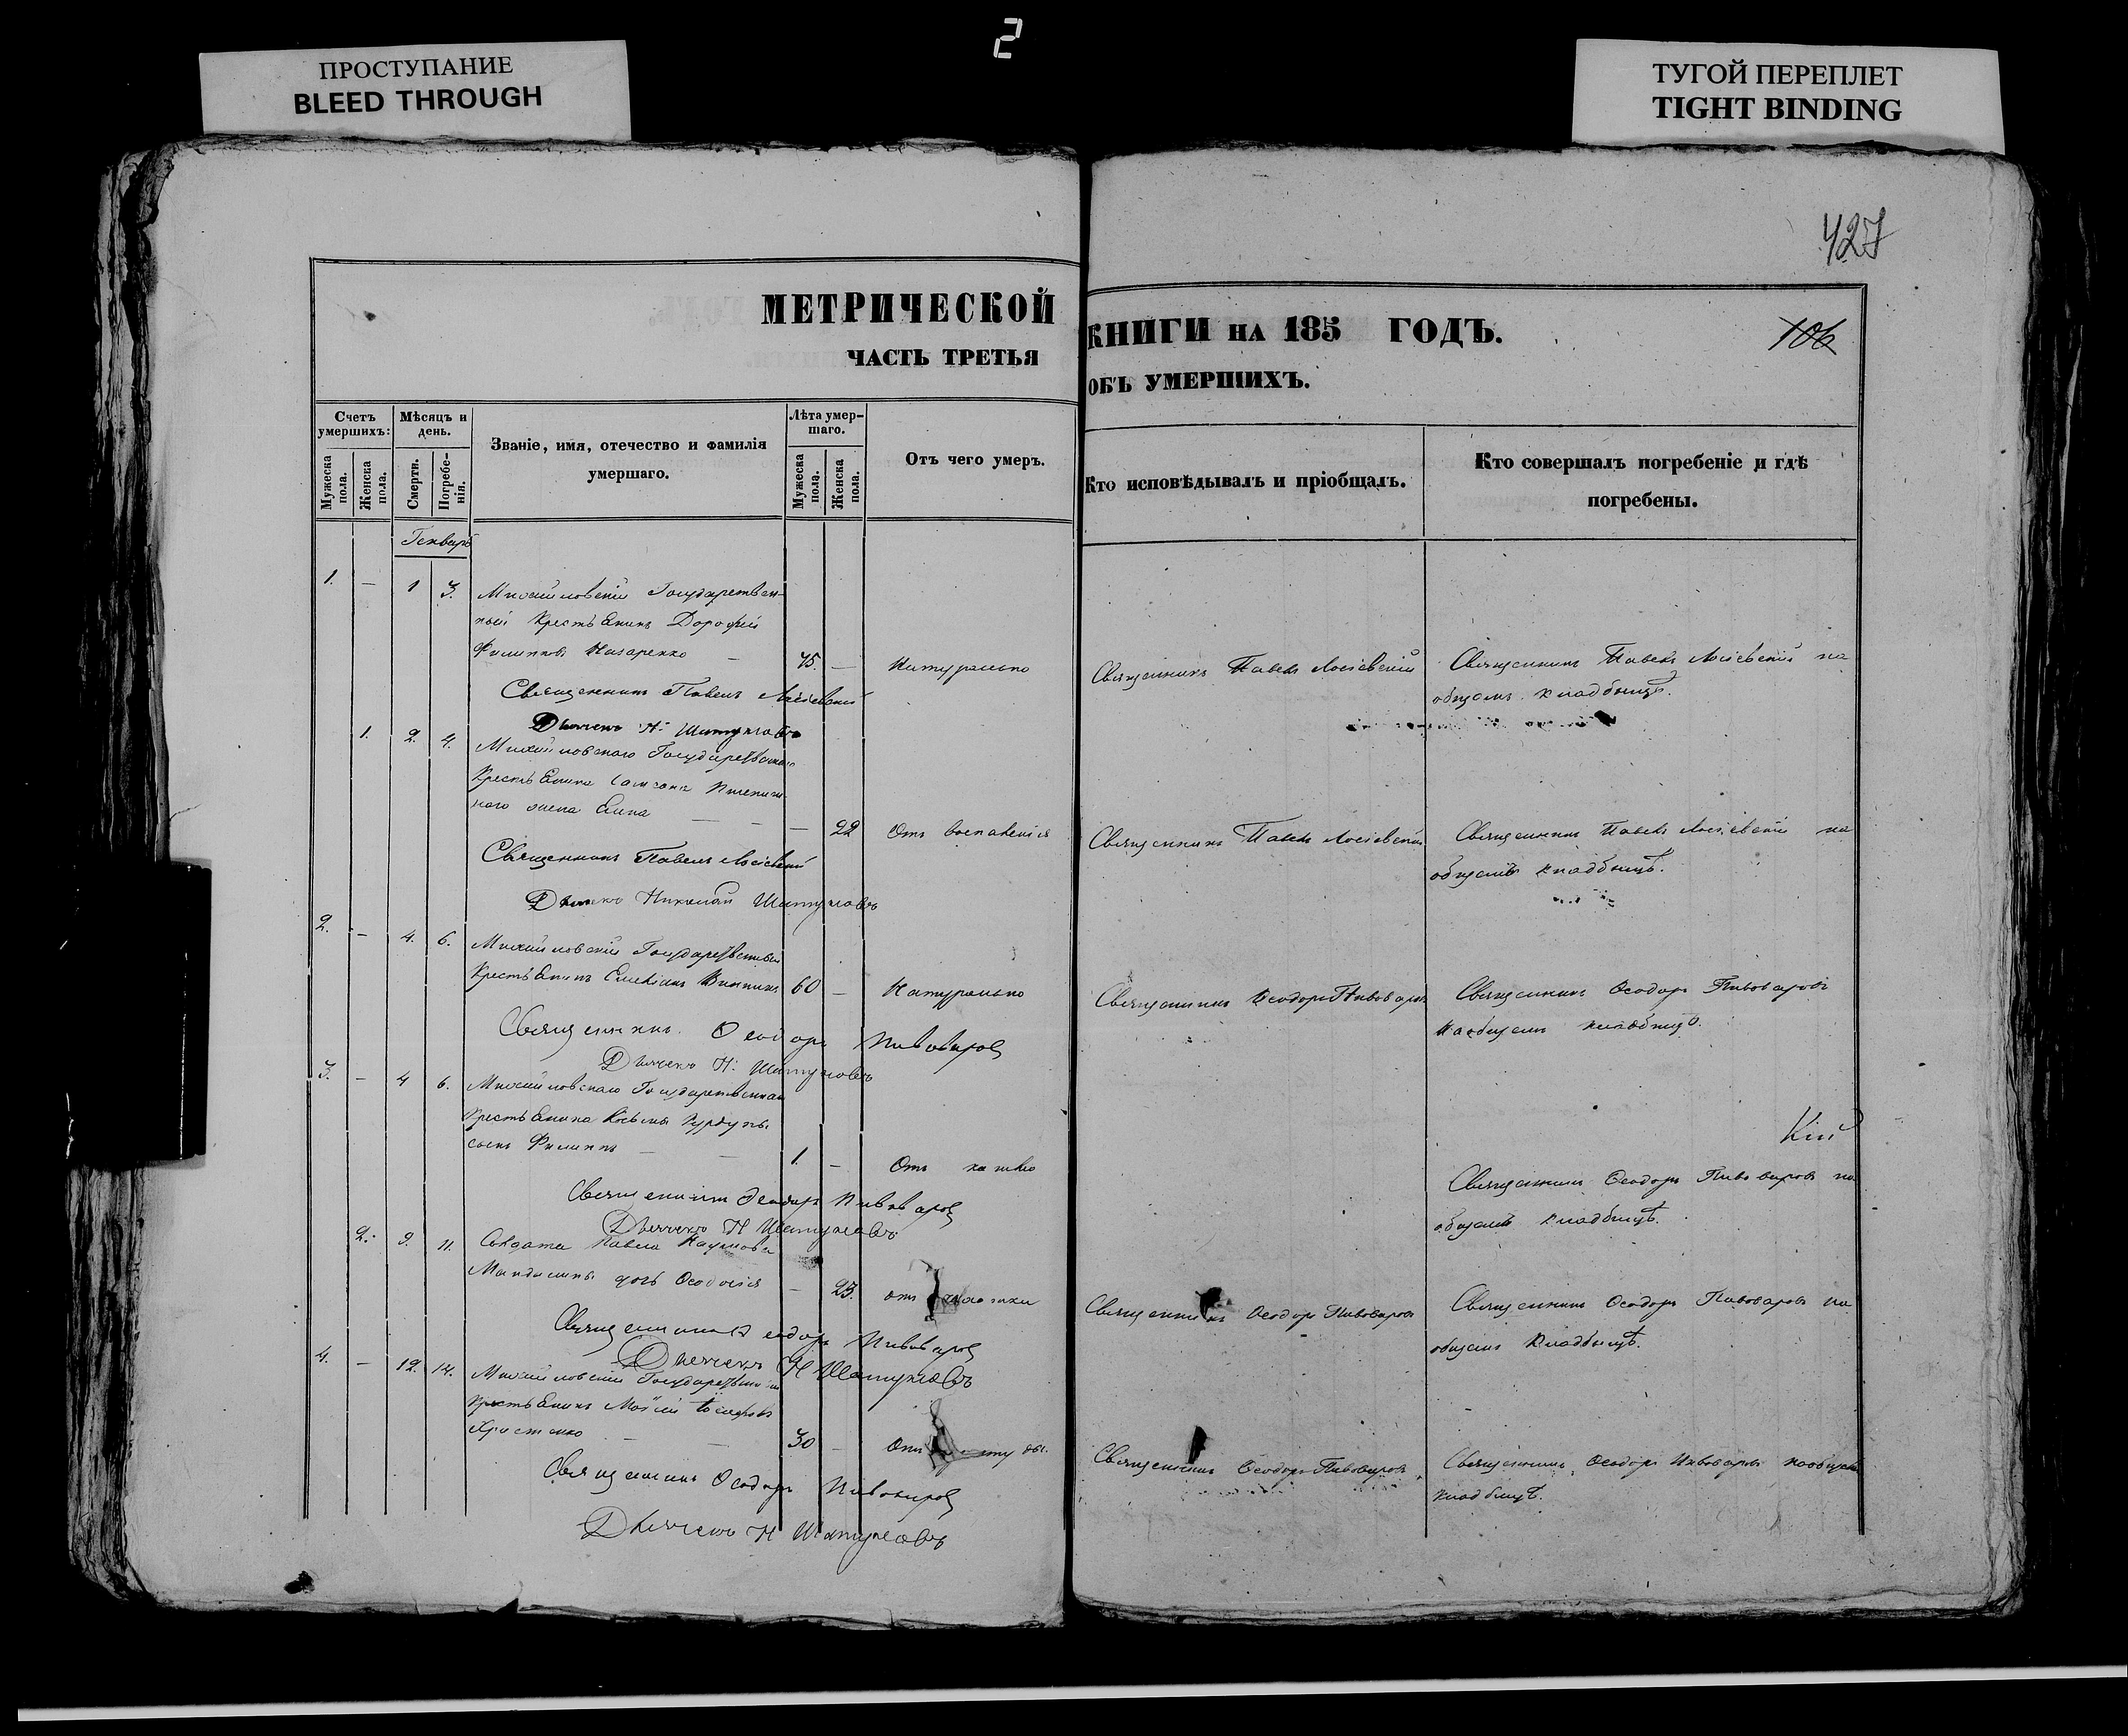 2
ПРОСТУПАНИЕ
BLEED THROUGH
ТУГОЙ ПЕРЕПЛЕТ
TIGHT BINDING
427
106
МЕТРИЧЕСКОЙ КНИГИ НА 185 ГОДЪ.
ЧАСТЬ ТРЕТЬЯ ОБЪ УМЕРШИХЪ.
Счетъ умершихъ:
Мужеска пола.
Женска пола.
Мѣсяцъ и день.
Смерти.
Погребенія.
Званіе, имя, отечество и фамилія умершаго.
Лѣта умершаго.
Мужеска пола.
Женска пола.
Отъ чего умеръ.
Кто исповѣдывалъ и пріобщалъ.
Кто совершалъ погребеніе и гдѣ погребены.
Генварь
1. — 1 3. Михайловскій Государствен-
ный Крестьянинъ Дорофей
Филиповъ Назаренко — 75. — Натурально Священникъ Павелъ Лосіевскій Священникъ Павелъ Лосіевскій на
общемъ кладбищѣ.
Священникъ Павелъ Лосіевскій
Дьячекъ Н: Шатуновъ
1. 2. 4. Михайловскаго Государственнаго
Крестьянина
жена — — — 22 Отъ воспаленія Священникъ Павелъ Лосіевскій Священникъ Павелъ Лосіевскій на
общемъ кладбищѣ.
Священникъ Павелъ Лосіевскій
Дьячекъ Николай Шатуновъ
2. — 4. 6. Михайловскій Государственный
Крестьянинъ 60 — Натурально Священникъ Ѳеодоръ Пивоваровъ Священникъ Ѳеодоръ Пивоваровъ
на общемъ кладбищѣ.
Священникъ Ѳеодоръ Пивоваровъ
Дьячекъ Н: Шатуновъ
3. — 4 6. Михайловскаго Государственнаго
Крестьянина Козьмы
сынъ Филиппъ — — 1. — Отъ кашлю Священникъ Ѳеодоръ Пивоваровъ на
общемъ кладбищѣ.
Священникъ Ѳеодоръ Пивоваровъ
Дьячекъ Н Шатуновъ
2. 9. 11. Солдата Павла Наумова
дочь Ѳеодосія — 23. отъ Священникъ Ѳеодоръ Пивоваровъ Священникъ Ѳеодоръ Пивоваровъ на
общемъ кладбищѣ.
Священникъ Ѳеодоръ Пивоваровъ
Дьячекъ Н Шатуновъ
4. — 12. 14. Михайловскій Государственный
Крестьянинъ Моисей
Христенко — — 30 — Отъ Священникъ Ѳеодоръ Пивоваровъ Священникъ Ѳеодоръ Пивоваровъ на общемъ
кладбищѣ.
Священникъ Ѳеодоръ Пивоваровъ
Дьячекъ Н Шатуновъ